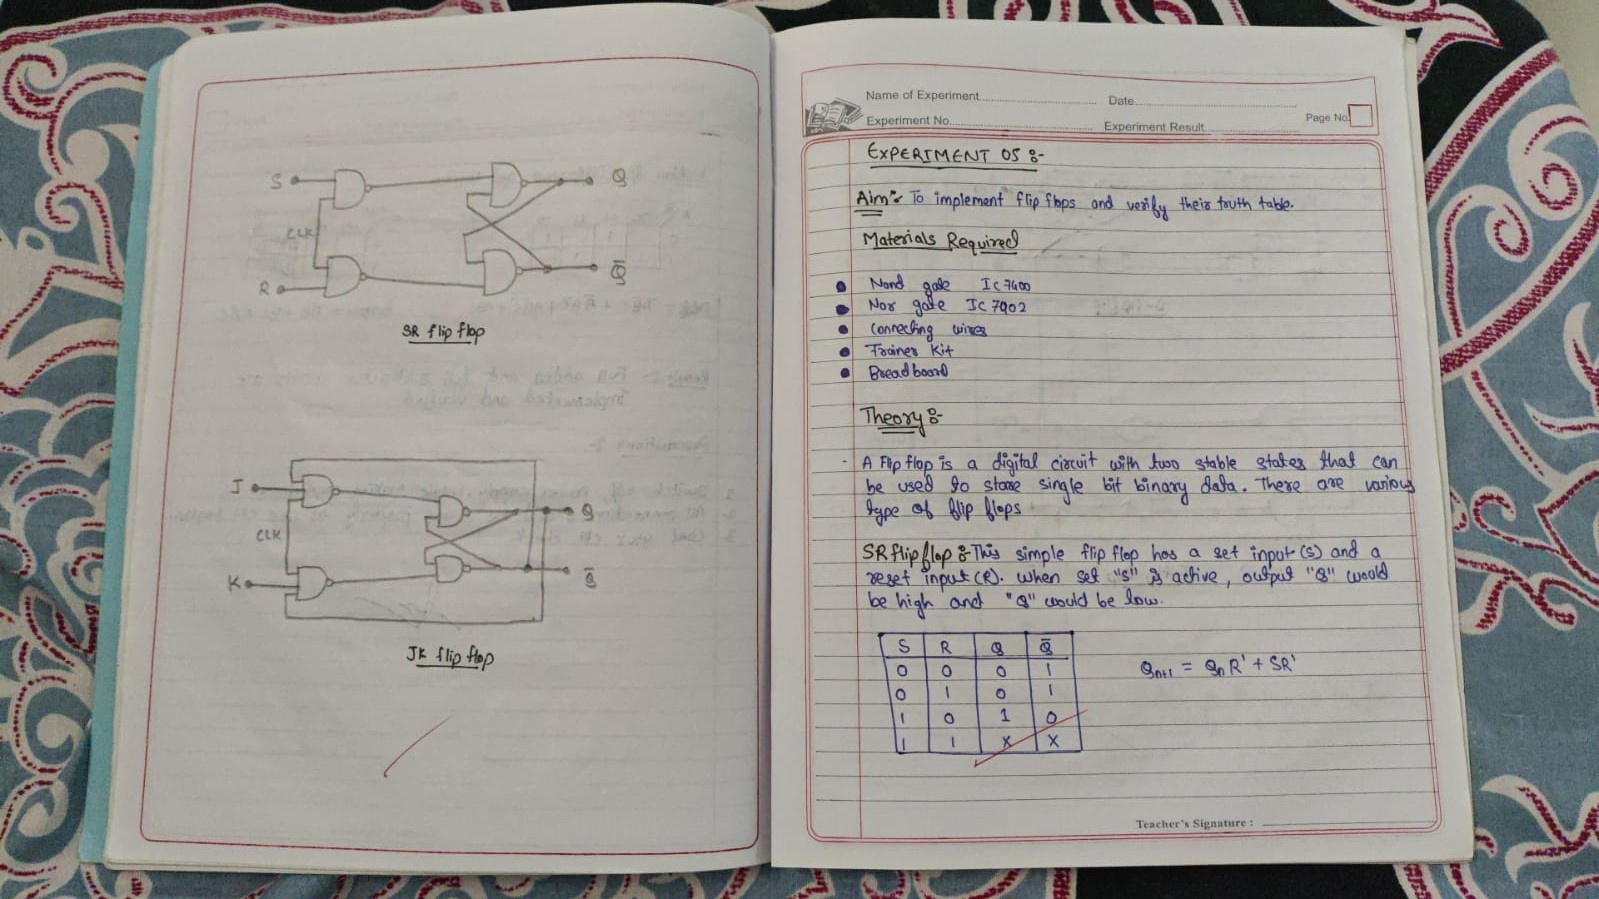 S
Q
CLK
R
Q̅
SR flip flop
J
Q
CLK
K
Q̅
JK flip flop
Name of Experiment
Date
Experiment No.
Experiment Result
Page No.
EXPERIMENT 05 :-
Aim :- To implement flip flops and verify their truth table.
Materials Required
Nand gate IC 7400
Nor gate IC 7402
Connecting wires
Trainer Kit
Breadboard
Theory :-
A Flip flop is a digital circuit with two stable states that can
be used to store single bit binary data. There are various
type of flip flops
SR flip flop :- This simple flip flop has a set input (S) and a
reset input (R). When set "S" is active, output "Q" would
be high and "Q" would be low.
S R Q Q̅
0 0 0 1
0 1 0 1
1 0 1 0
1 1 X X
Qn+1 = Qn R' + SR'
Teacher's Signature :